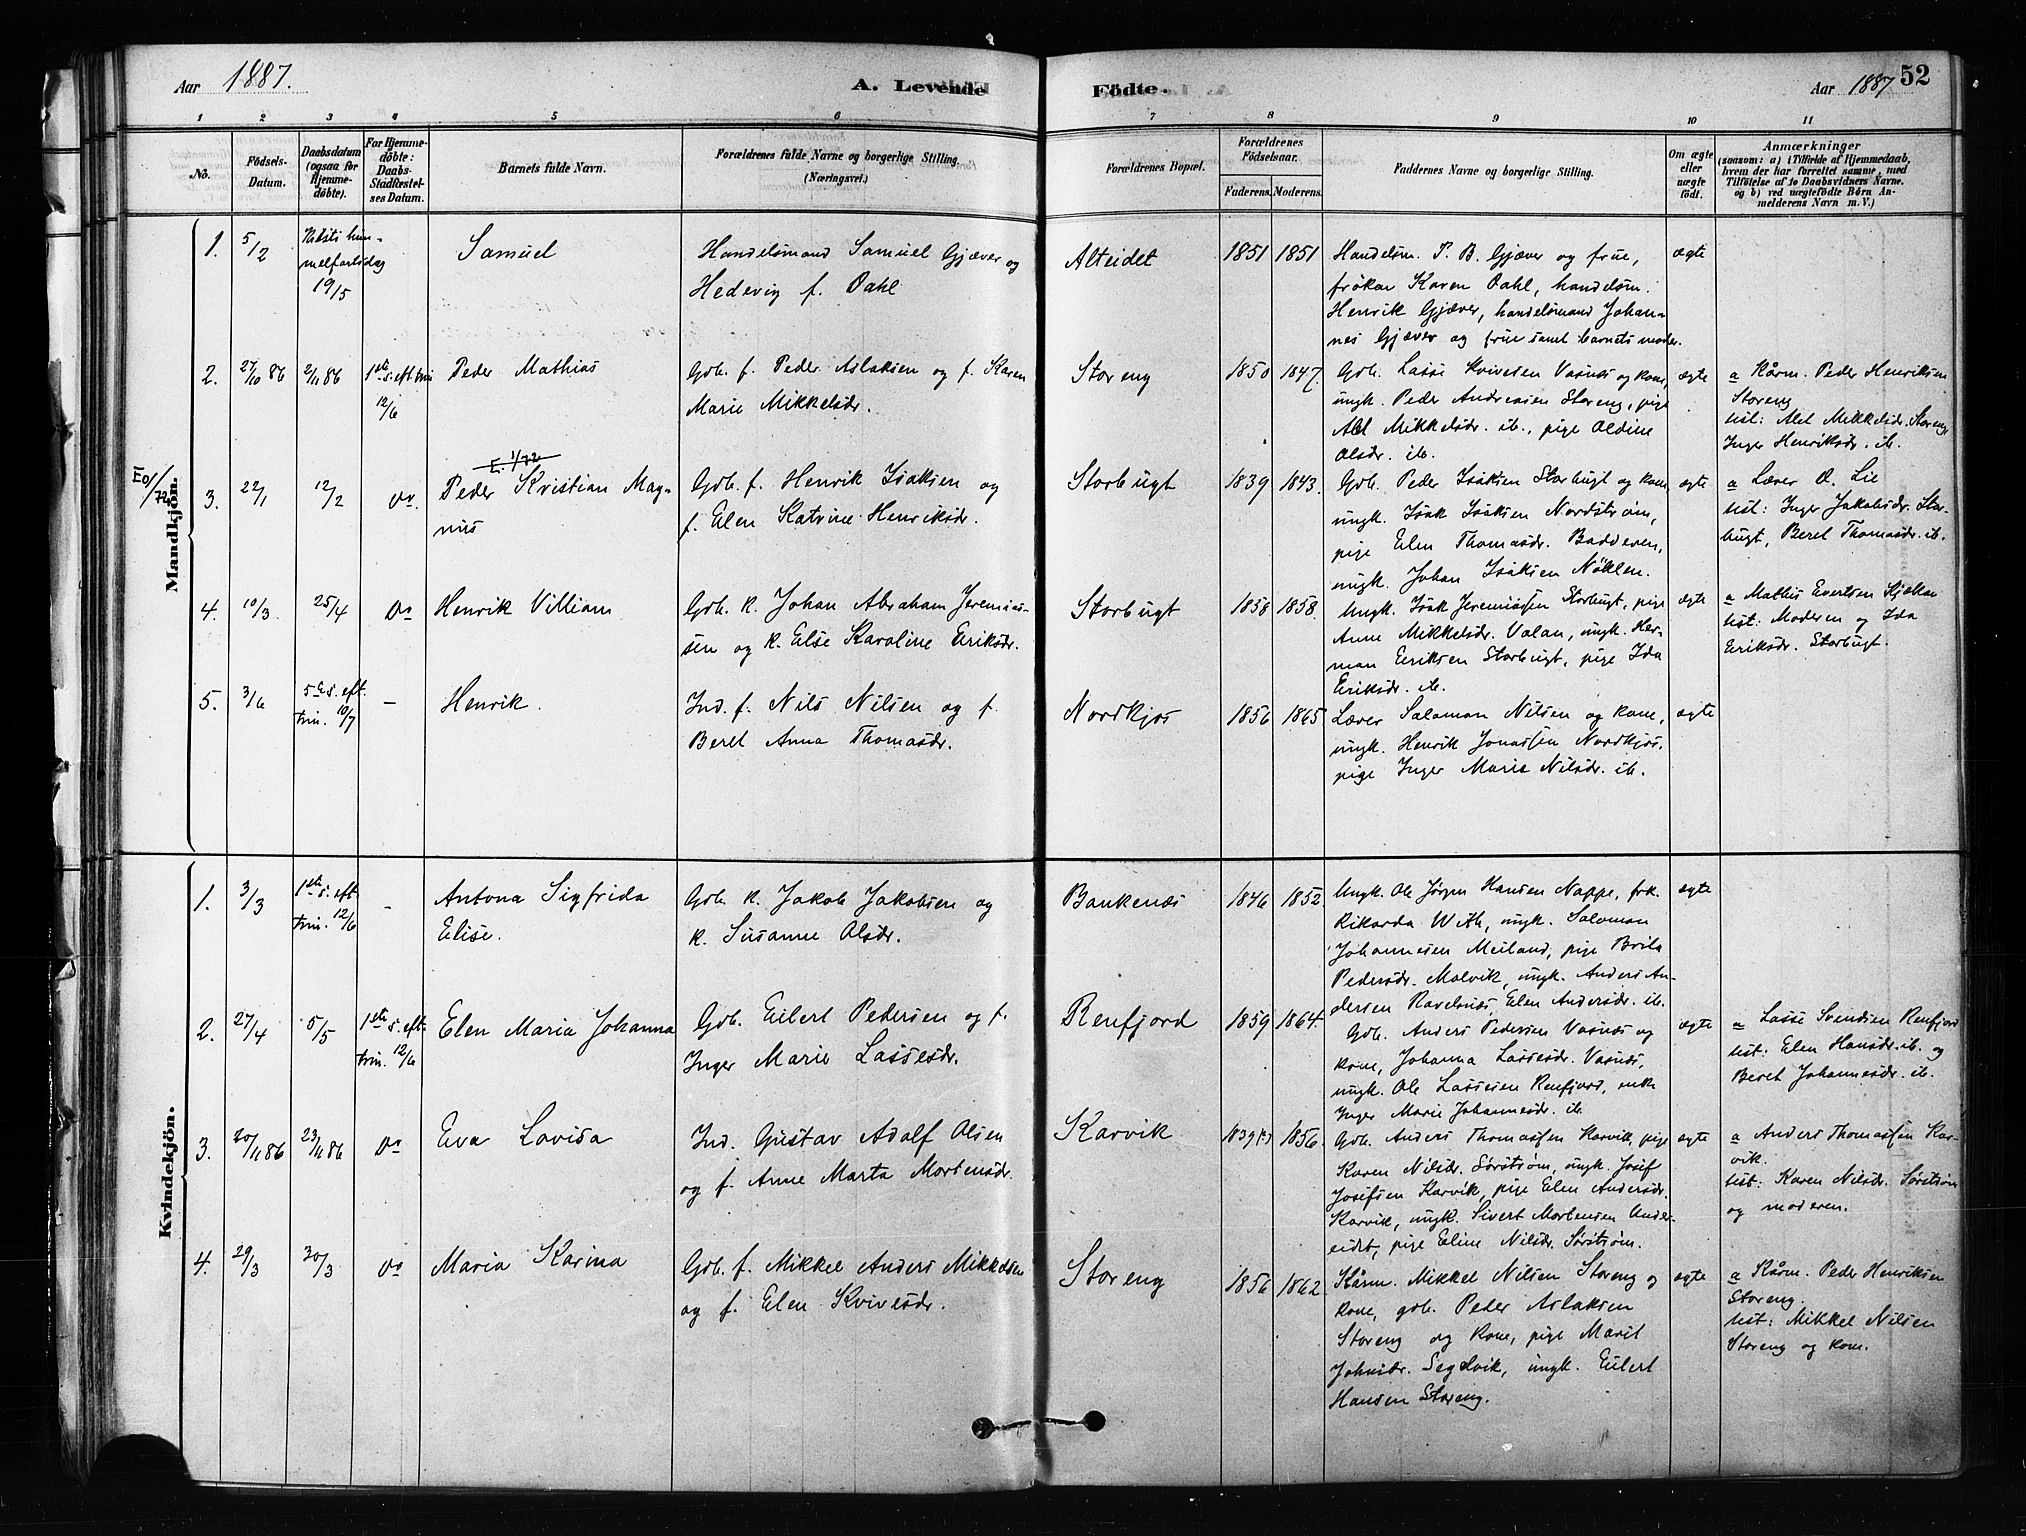 Aar 1887. A. Levende Födte. Aar 1887 52
1 2 3 4 5 6 7 8 9 10 11
No.
Födsels-Datum.
Daabsdatum (ogsaa for Hjemmedöbte).
For Hjemmedöbte: Daabs-Stadfæstelses Datum.
Barnets fulde Navn.
Forældrenes fulde Navne og borgerlige Stilling. (Næringsvei.)
Forældrenes Bopæl.
Forældrenes Födselsaar.
Faderens. Moderens.
Faddernes Navne og borgerlige Stilling.
Om ægte eller uægte født.
Anmærkninger
(saasom: a) i Tilfælde af Hjemmedaab, hvem der har forrettet samme, med Tilföielse af to Daabsvidners Navne. og b) ved uægtefödte Börn Anmelderens Navn m. V.)
Mandkjön.
1. 5/2
melfartsdag
19/5
Samuel
Handelsmand Samuel Gjæver og
Hedevig f. Dahl
Alteidet
1851 1851
Handelsm. P. B. Gjæver og frue,
frøken Karen Dahl, handelsm.
Henrik Gjæver, handelsmand Johan-
nes Gjæver og frue samt barnets moder.
ægte
2. 27/10 86 2/11 86 1ste s. eft. trin
12/6
Peder Mathias
Gdb. f. Peder Aslaksen og f. Karen
Marie Mikkelsdr.
Storeng
1850 1847.
Gdb. Lasse Kvivesen Vasnæs og kone,
ungk. Peder Andreasen Storeng, pige
Mikkelsdr. ib., pige Oldine
Olsdr. ib.
ægte
a Kårm. Peder Henriksen
Storeng
test: Mikkelsdr. Storeng
Inger Henriksdr. ib.
E0/72
E. 1/72
3. 22/1 12/2 Do.
Peder Kristian Mag-
nus
Gdb. f. Henrik Isaksen og
f. Elen Katrine Henriksdr.
Storbugt
1839 1843.
Gdb. Peder Isaksen Storbugt og kone,
ungk. Isak Isaksen Nordstrøm,
pige Elen Thomasdr. Badderen,
ungk. Johan Isaksen Nöklen.
ægte
a Lærer O. Lie
test: Inger Jakobsdr. Stor-
bugt, Beret Thomasdr. ib.
4. 10/3 25/4 Do
Henrik Villiam
Gdb. K. Johan Abraham Jeremias-
sen og K. Else Karoline Eriksdr.
Storbugt
1858 1858.
Ungk. Isak Jeremiassen Storbugt, pige
Anne Mikkelsdr. Valan, ungk. Her-
man Eriksen Storbugt, pige Ida
Eriksdr. ib.
ægte
a Mathis Evertsen
test: Moderen og Ida
Eriksdr. Storbugt.
5. 3/6 5te s. eft.
trin. 10/7
–
Henrik.
Ind. f. Nils Nilsen og f.
Beret Anna Thomasdr.
Nordkjos
1856 1865
Lærer Salamon Nilsen og kone,
ungk. Henrik Jonassen Nordkjos.
pige Inger Marie Nilsdr. ib.
ægte
Kvindekjön.
1. 3/3 1ste s. eft
trin. 12/6
–
Antona Sigfrida
Elise.
Gdb. K. Jakob Jakobsen og
K. Susanne Olsdr.
Bankenæs
1846 1852.
Ungk. Ole Jørgen Hansen Nappe, frk.
Rikarda With, ungk. Salomon
Johannesen Meiland, pige Brita
Pedersdr. Malvik, ungk. Anders An-
dersen Ravelsnæs, Elen Andersdr. ib.
ægte
2. 27/4 5/5 1ste s. eft.
trin. 12/6
Elen Maria Johanna
Gdb. Eilert Pedersen og f.
Inger Marie Lassesdr.
Renfjord
1859 1864.
Gdb. Anders Pedersen Vasnæs og
kone, Johanna Lassesdr. Vasnæs,
ungk. Ole Lassesen Renfjord, enke
Inger Marie Johannesdr. ib.
ægte
a Lasse Svendsen Renfjord
test: Elen Hansdr. ib. og
Beret Johannesdr. ib.
3. 20/11 86 23/11 86 Do
Eva Lovisa
Ind. Gustav Adolf Olsen
og f. Anne Marta Mortensdr.
Karvik
1839 1856.
Gdb. Anders Thomassen Karvik, pige
Karen Nilsdr. Sørstrøm, ungk. Josef
Josefsen Karvik, pige Elen Andersdr.
Karvik, ungk. Sivert Mortensen Ander-
eidet, pige Eline Nilsdr. Sørstrøm.
ægte
a Anders Thomassen Kar-
vik.
test: Karen Nilsdr. Sørstrøm
og moderen.
4. 29/3 30/3 Do
Maria Karina
Gdb. f. Mikkel Anders Mikkelsen
og f. Elen Kvivesdr.
Storeng
1856 1862.
Kårm. Mikkel Nilsen Storeng og
kone, gdb. Peder Aslaksen
Storeng og kone, pige Marit
Johnsdr. Segelvik, ungk. Eilert
Hansen Storeng.
ægte
a Kårm. Peder Henriksen
Storeng.
test: Mikkel Nilsen
Storeng og kone.